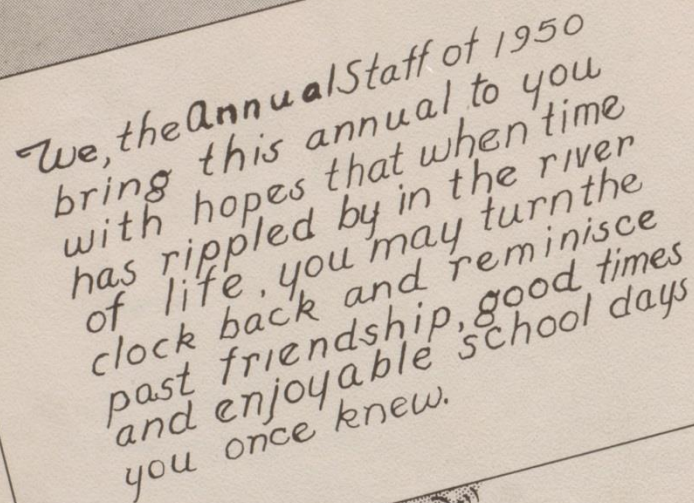 We, the Annual Staff of 1950
bring this annual to you
with hopes that when time
has rippled by in the river
of life, you may turn the
clock back and reminisce
past friendship, good times
and enjoyable school days
you once knew.